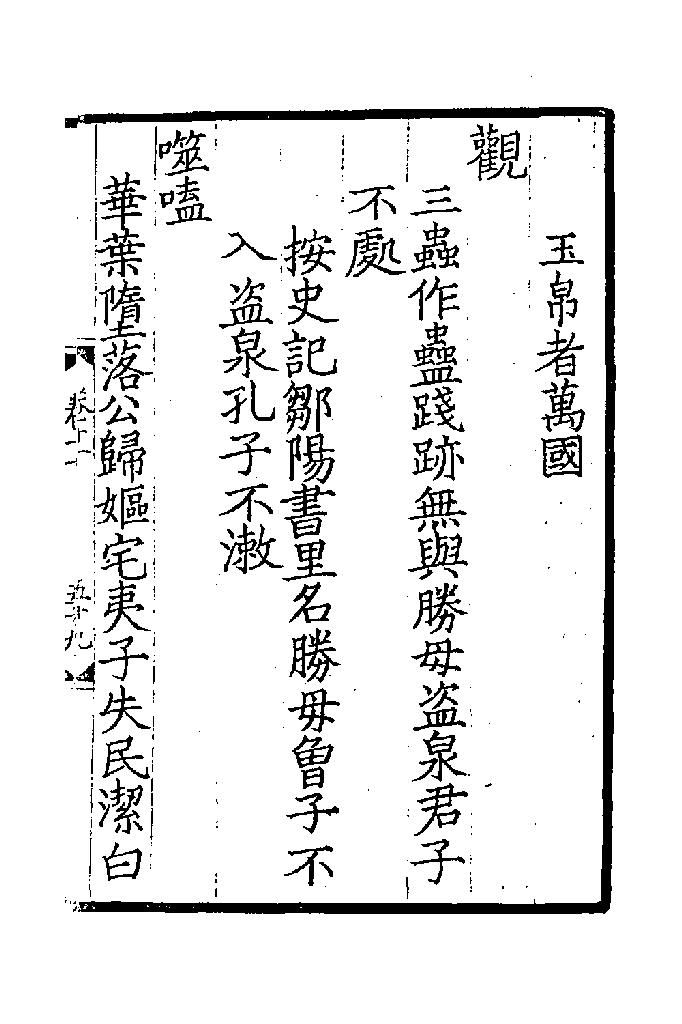 玉帛者萬國
觀
三蟲作蠱踐跡無與勝母盜泉君子
不處
按史記鄒陽書里名勝毋曾子不
入盜泉孔子不漱
噬嗑
華葉墮落公歸嫗宅夷子失民潔白
卷十一
五十九